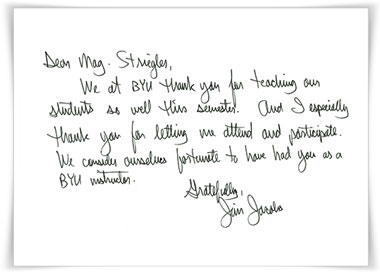 Dear Mag. Striegler,
We at BYU thank you for teaching our
students so well this semester. And I especially
thank you for letting me attend and participate.
We consider ourselves fortunate to have had you as a
BYU instructor.
Gratefully,
Jacobs